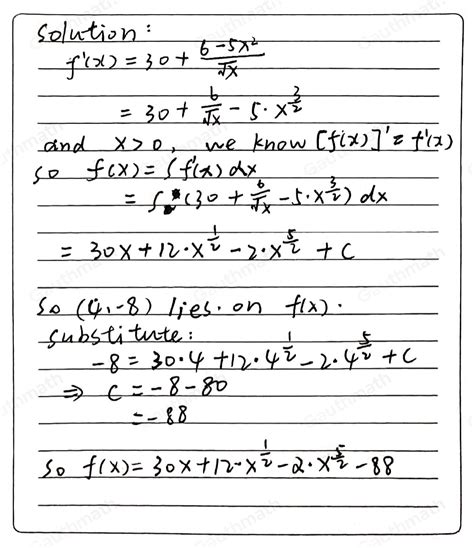 Solution:
f'(x) = 30 + (6-5x²)/√x
= 30 + 6/√x - 5·x^(3/2)
and x>0, we know [f(x)]' = f'(x)
so f(x) = ∫f'(x)dx
= ∫(30 + 6/√x - 5·x^(3/2)) dx
= 30x + 12·x^(1/2) - 2·x^(5/2) + C
So (4,-8) lies on f(x).
substitute:
-8 = 30·4 + 12·4^(1/2) - 2·4^(5/2) + C
⇒ C = -8-80
= -88
So f(x) = 30x + 12·x^(1/2) - 2·x^(5/2) - 88
Gauthmath